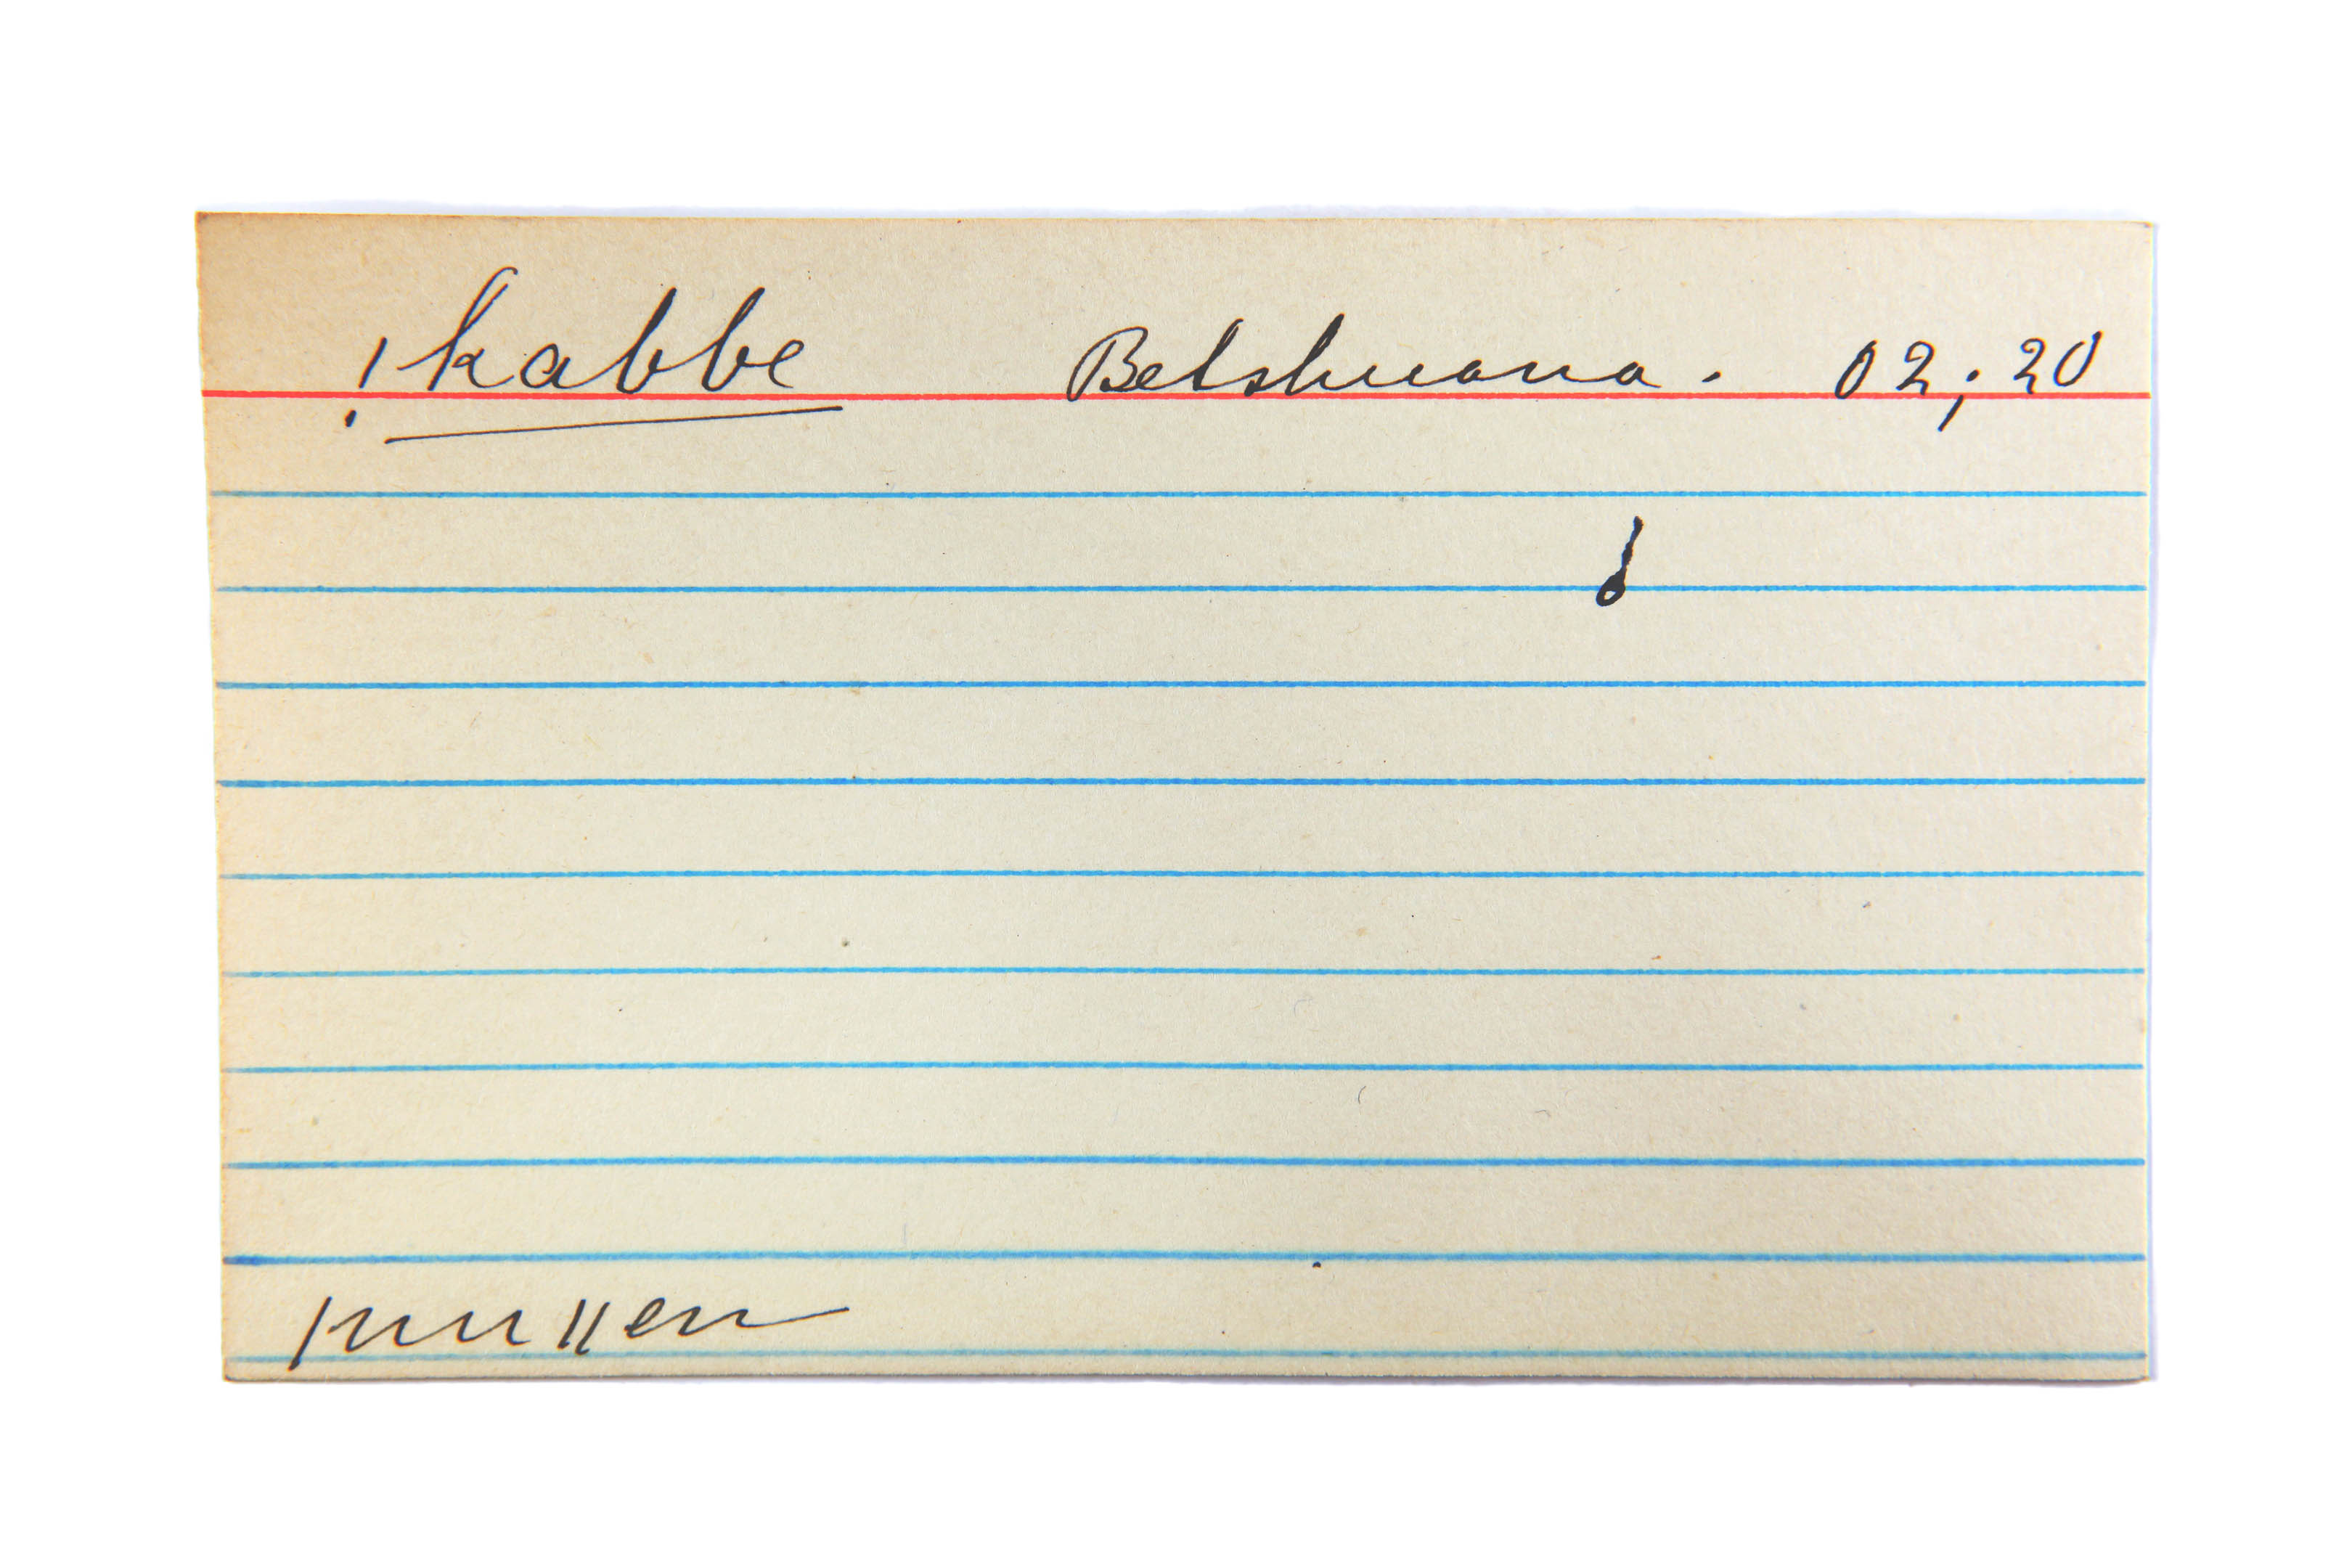 !kabbe Betshuana. 02; 20